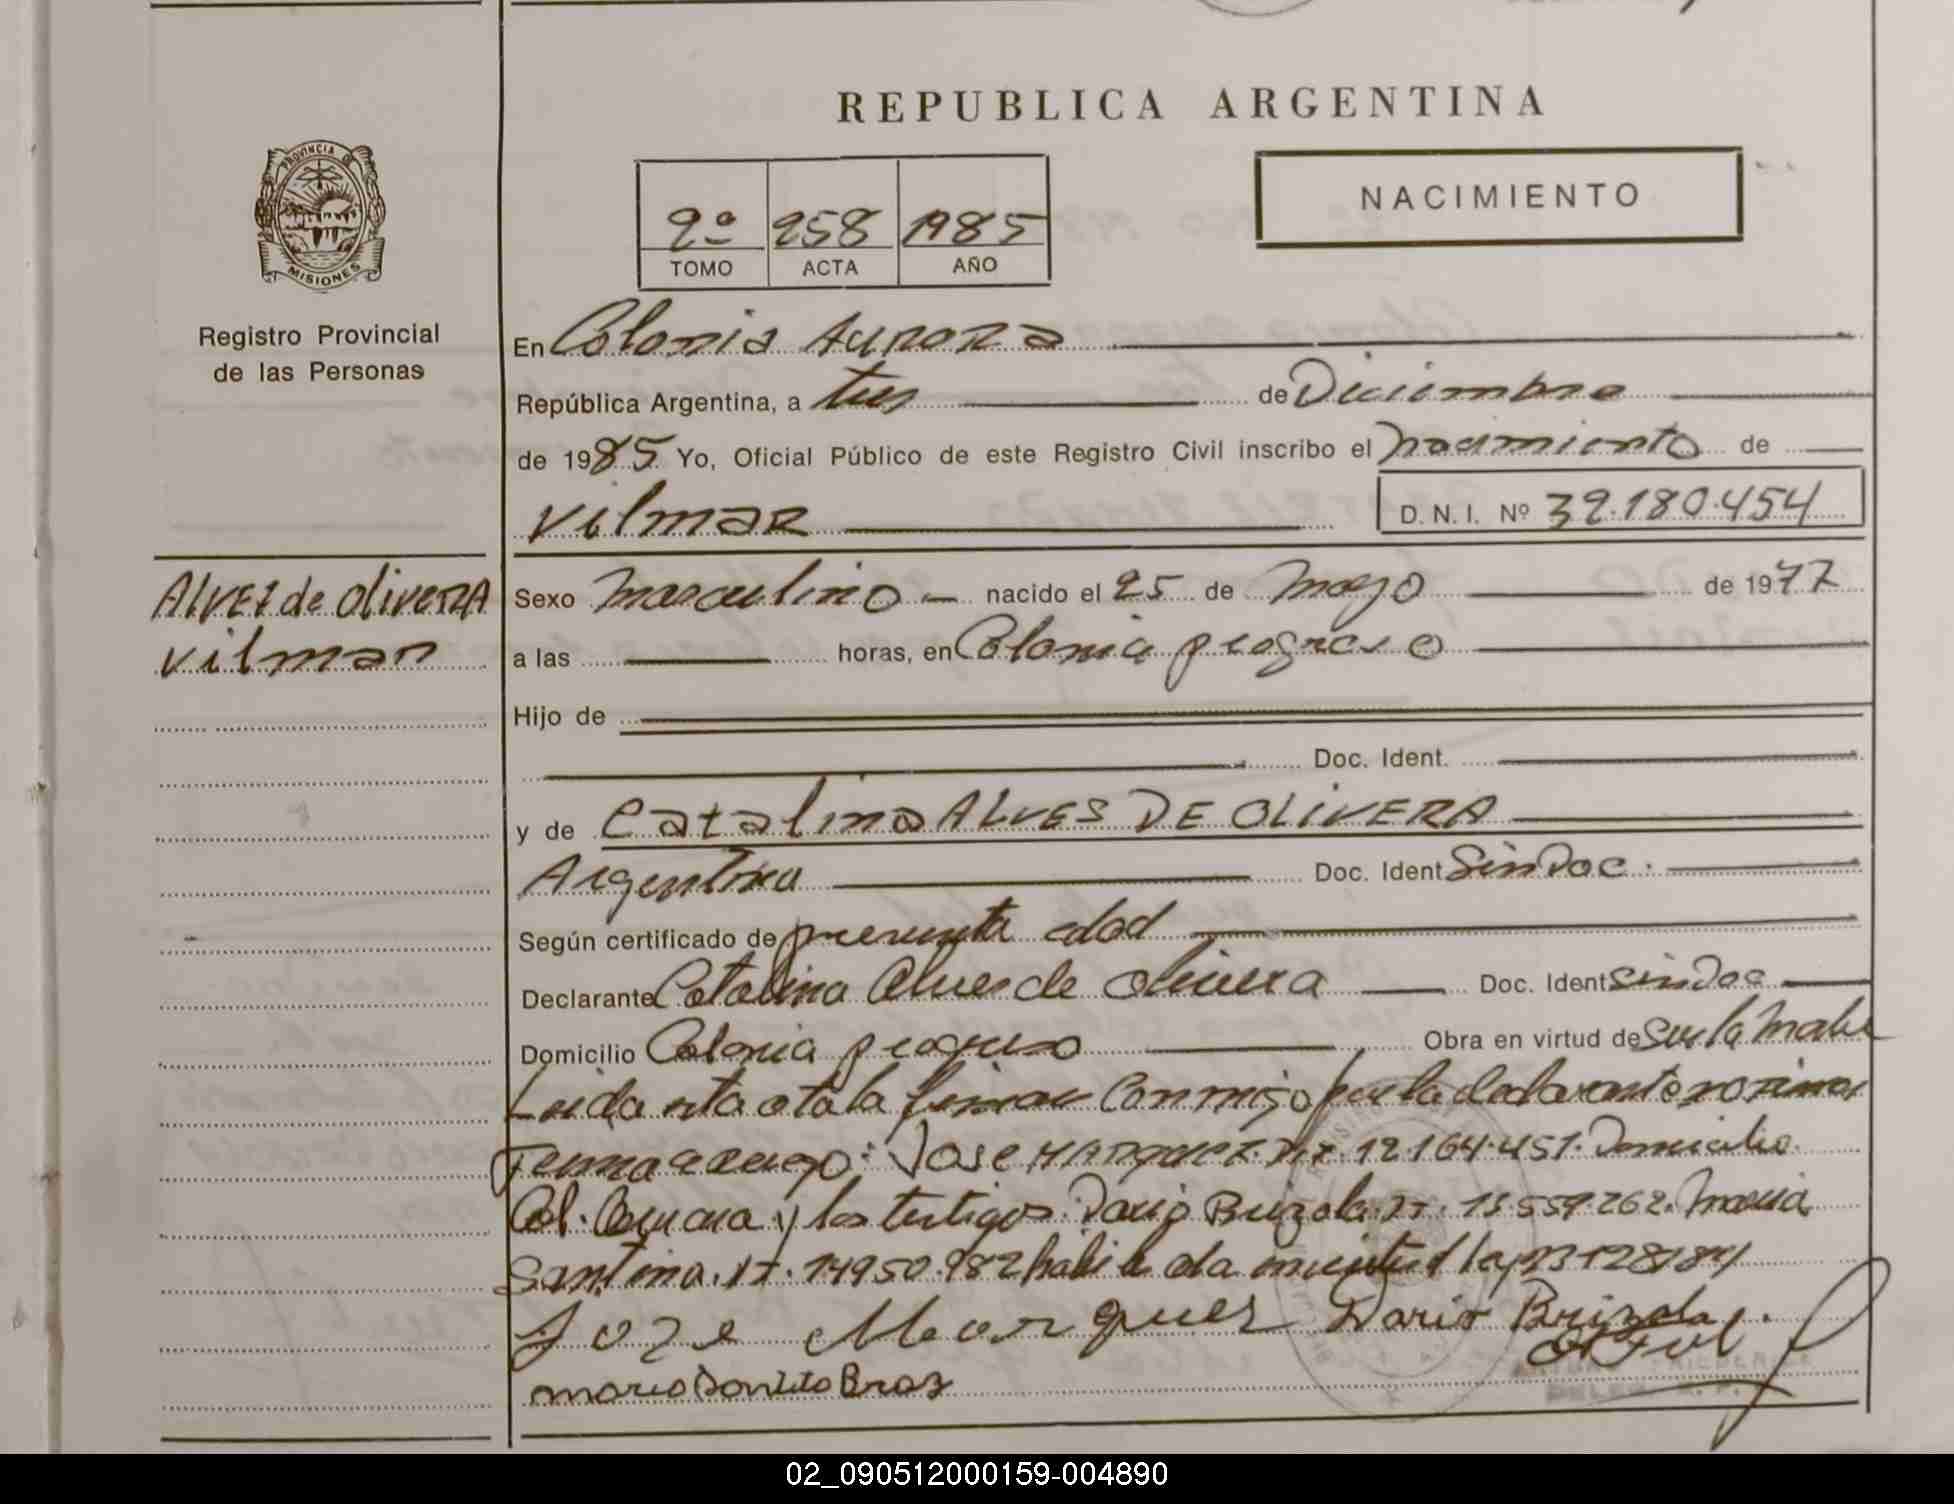 REPUBLICA ARGENTINA
PROVINCIA DE
MISIONES
Registro Provincial
de las Personas
2º 258 1985
TOMO ACTA AÑO
NACIMIENTO
En Colonia Aurora
República Argentina, a tres de Diciembre
de 1985 Yo, Oficial Público de este Registro Civil inscribo el nacimiento de
Vilmar D. N. I. Nº 32.180.454
ALVES de OliVERA
Vilmar
Sexo masculino nacido el 25 de mayo de 1977
a las horas, en Colonia progreso
Hijo de
Doc. Ident.
y de Catalina ALVES DE OLIVERA
Argentina Doc. Ident Sin Doc.
Según certificado de presunta edad
Declarante Catalina Alves de Olivera Doc. Ident sin Doc
Domicilio Colonia progreso Obra en virtud de ser la Madre
Leida esta acta la firman Conmigo por la declarante no firmar
firma a ruego: Jose Marquez. 12.164.451. Domicilio
Col. Aurora y los testigos. Dario Brizola. 13.559.262. Maria
Santina. 14950.982 habilitada ley 23128/84
Joze Marques Dario Brizola
02_090512000159-004890